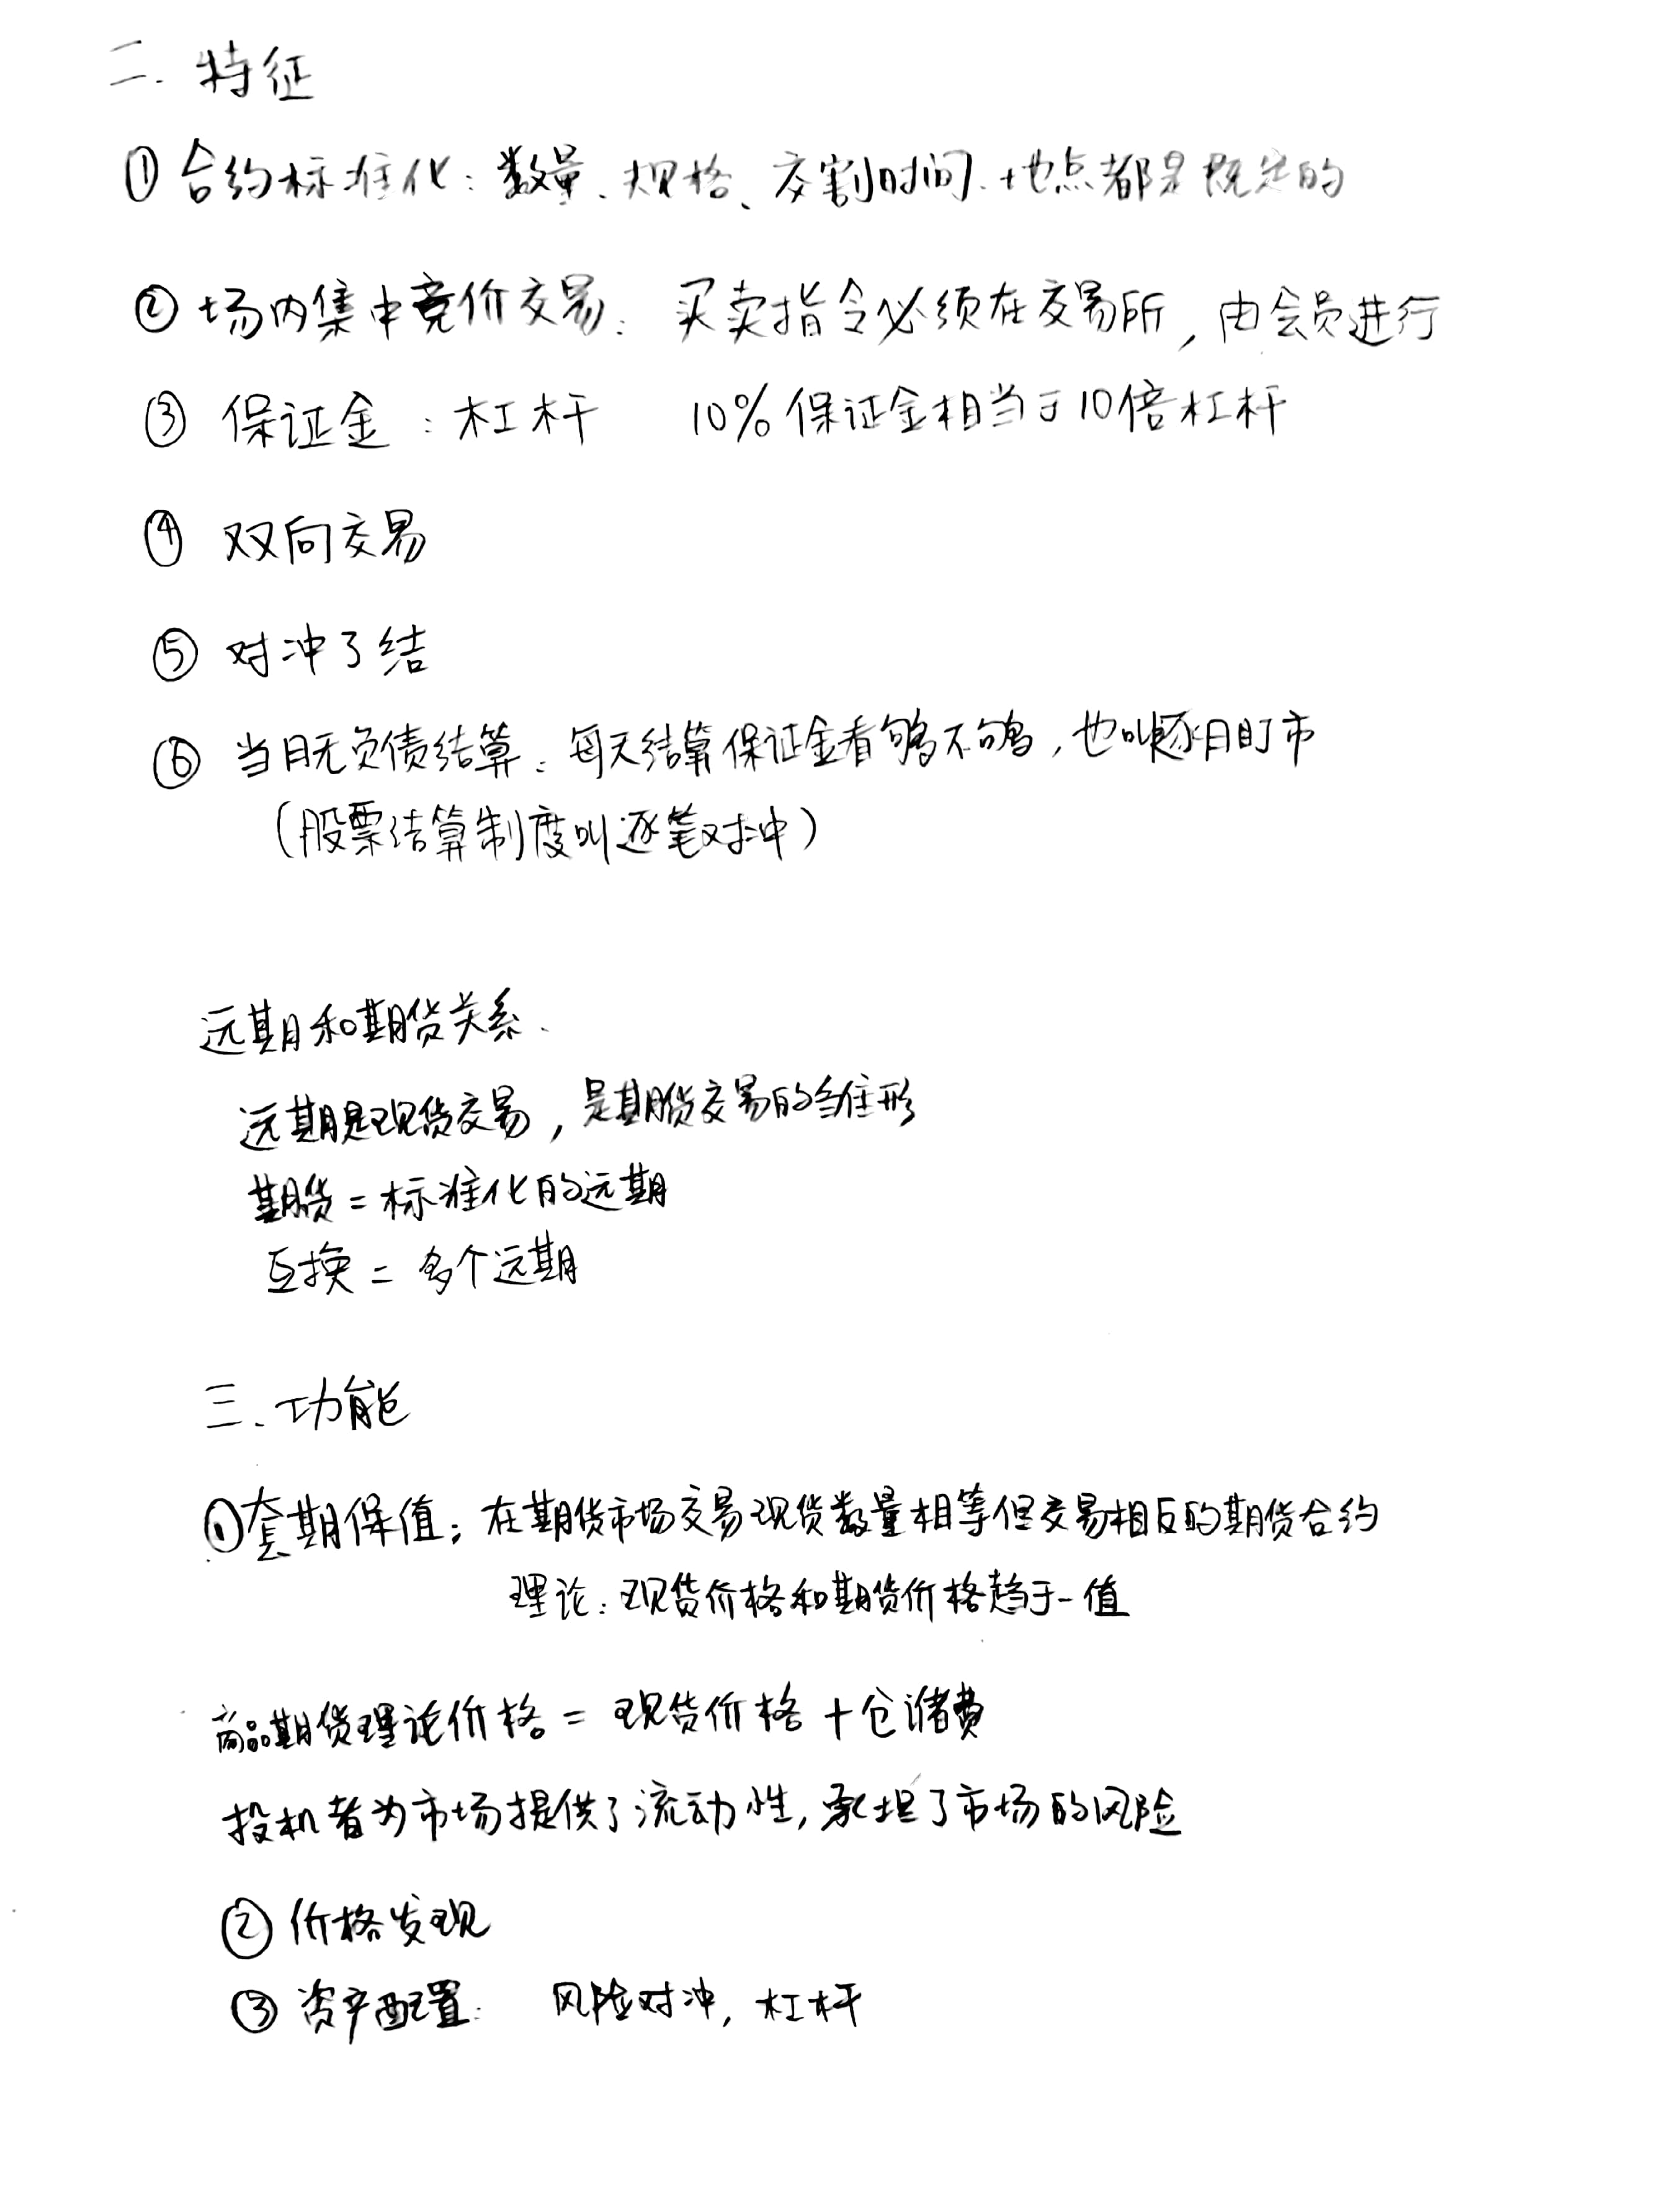 二. 特征
① 合约标准化: 数量、规格、交割时间、地点都是既定的
② 场内集中竞价交易: 买卖指令必须在交易所, 由会员进行
③ 保证金: 杠杆 10%保证金相当于10倍杠杆
④ 双向交易
⑤ 对冲了结
⑥ 当日无负债结算: 每天结算保证金看够不够, 也叫逐日盯市
(股票结算制度叫逐笔对冲)
远期和期货关系.
远期是现货交易, 是期货交易的雏形
期货=标准化的远期
互换=多个远期
三. 功能
①套期保值: 在期货市场交易现货数量相等但交易相反的期货合约
理论: 现货价格和期货价格趋于一值
商品期货理论价格=现货价格+仓储费
投机者为市场提供了流动性, 承担了市场的风险
② 价格发现
③ 资产配置: 风险对冲, 杠杆